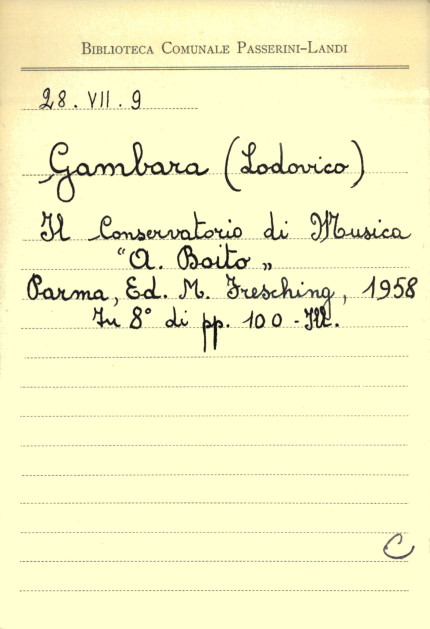 BIBLIOTECA COMUNALE PASSERINI-LANDI
28. VII. 9
Gambara (Lodovico)
Il Conservatorio di Musica
"A. Boito„
Parma, Ed. M. Fresching, 1958
In 8° di pp. 100 - Ill.
C